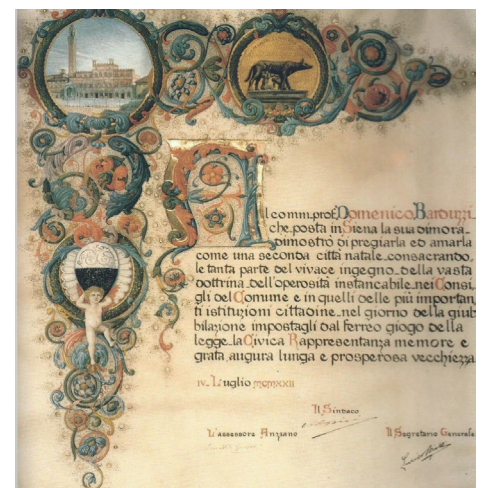 Al comm. prof. Domenico Barduzzi
che, posta in Siena la sua dimora,
dimostrò di pregiarla ed amarla
come una seconda città natale, consacrando
le tanta parte del vivace ingegno, della vasta
dottrina, dell'operosità instancabile, nei Consi
gli del Comune e in quelli delle più importan
ti istituzioni cittadine, nel giorno della giub
bilazione impostagli dal ferreo giogo della
legge, la Civica Rappresentanza memore e
grata, augura lunga e prosperosa vecchiezza
IV. Luglio MCMXXII
Il Sindaco
L'assessore Anziano
Il Segretario Generale